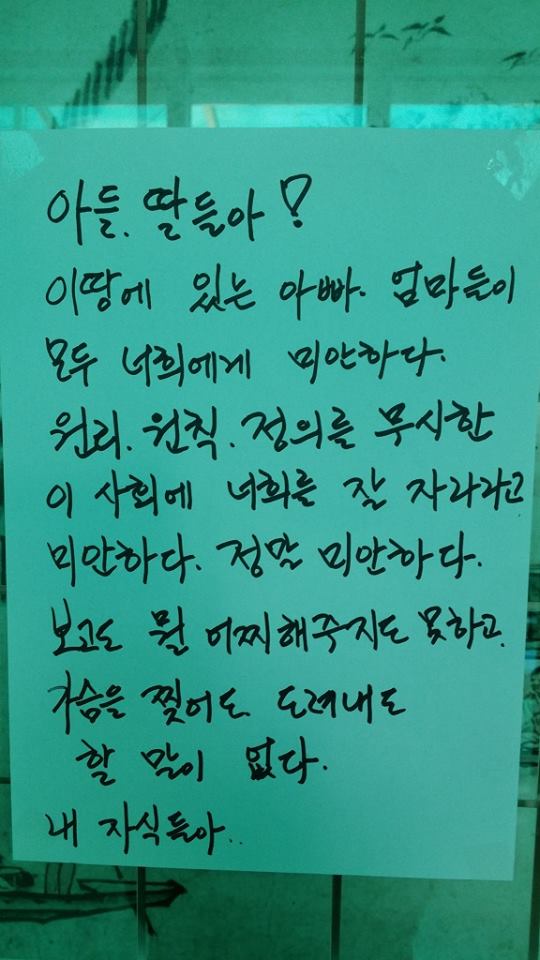 아들. 딸들아!
이땅에 있는 아빠. 엄마들이
모두 너희에게 미안하다.
원리. 원칙. 정의를 무시한
이 사회에 너희를 잘 자라라고
미안하다. 정말 미안하다.
보고도 뭘 어찌해주지도 못하고.
가슴을 찢어도 도려내도
할 말이 없다.
내 자식들아..